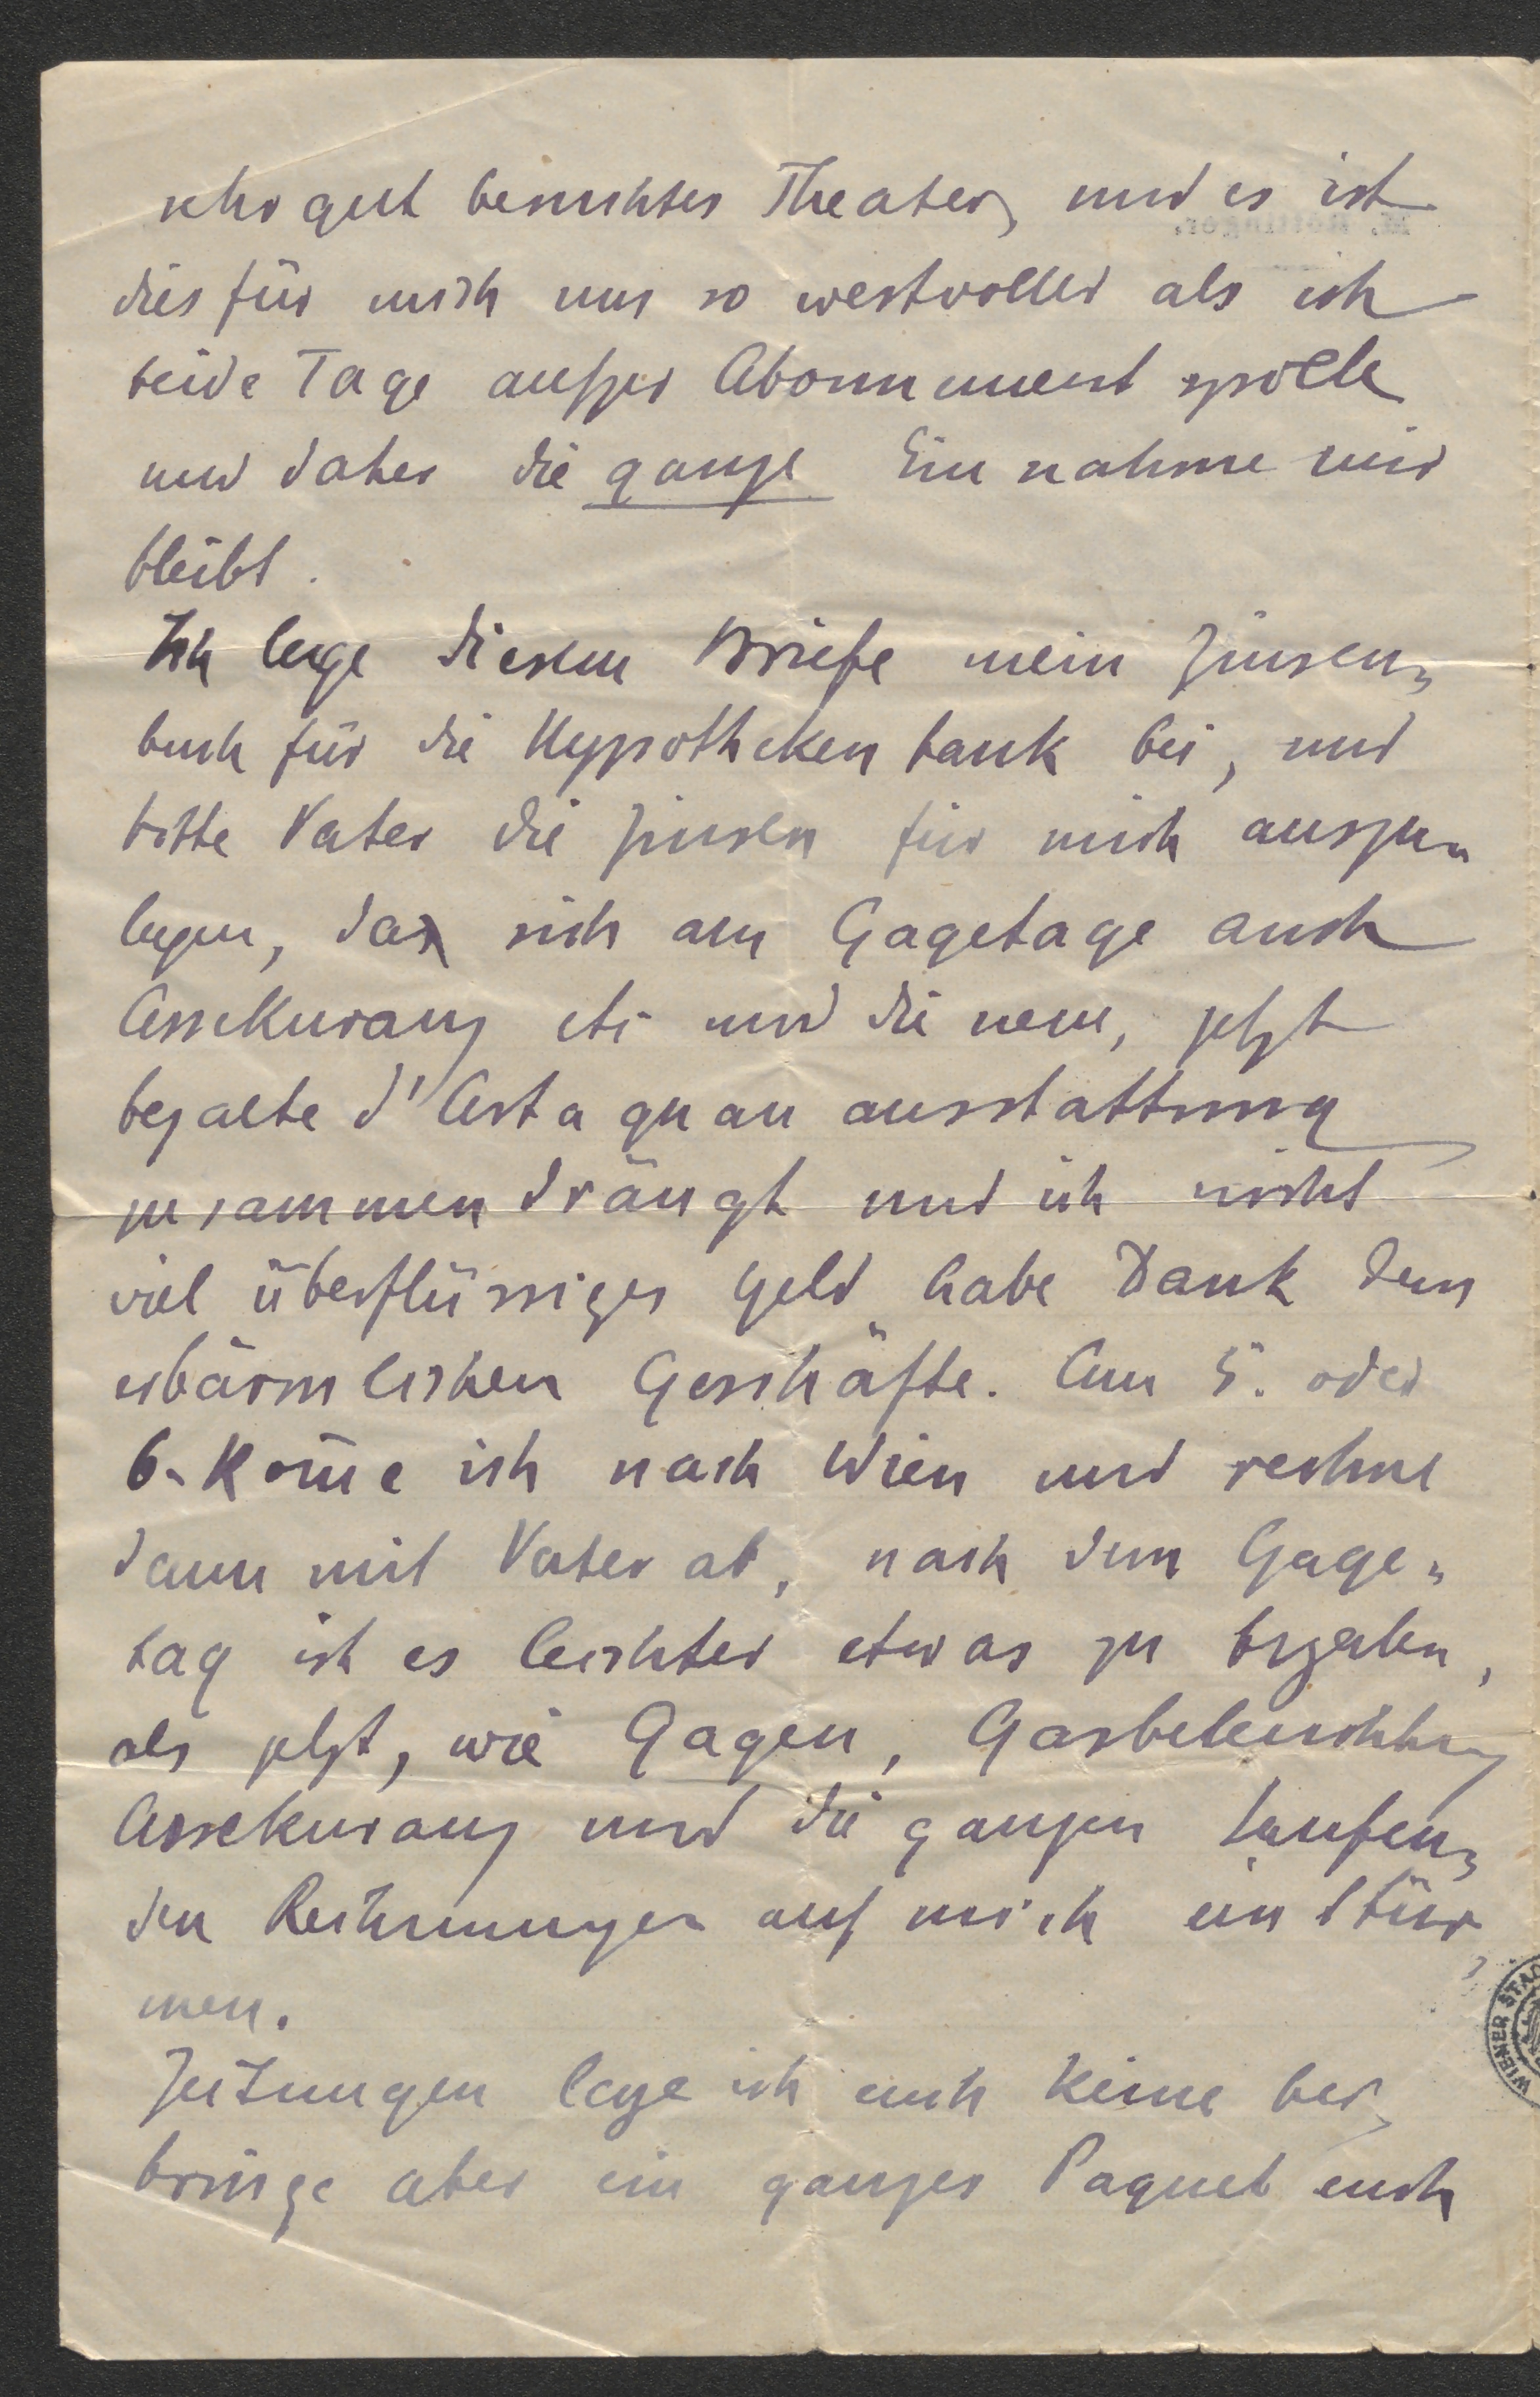 sehr gut besuchtes Theater, und es ist
dies für mich um so wertvoller als ich
beide Tage ausser Abonnement spiele
und daher die ganze Einnahme mir
bleibt.
Ich lege diesem Briefe mein Zinsen„
buch für die Hypothekenbank bei, und
bitte Vater die Zinsen für mich auszu„
legen, da sich am Gagetage auch
Assekuranz etc und die neue, jetzt
bezalte d'Artagnan ausstattung
zusammendrängt und ich nicht
viel überflüssiges Geld habe Dank dem
erbärmlichen Geschäfte. Am 5. oder
6. kom̅e ich nach Wien und rechne
dann mit Vater ab, nach dem Gage„
tag ist es leichter etwas zu bezalen,
als jetzt, wie Gagen, Gasbeleuchtung
Assekuranz und die ganzen laufen„
den Rechnungen auf mich einstür„
men.
Zeitungen lege ich euch keine bei,
bringe aber ein ganzes Paquet euch
WIENER STAD